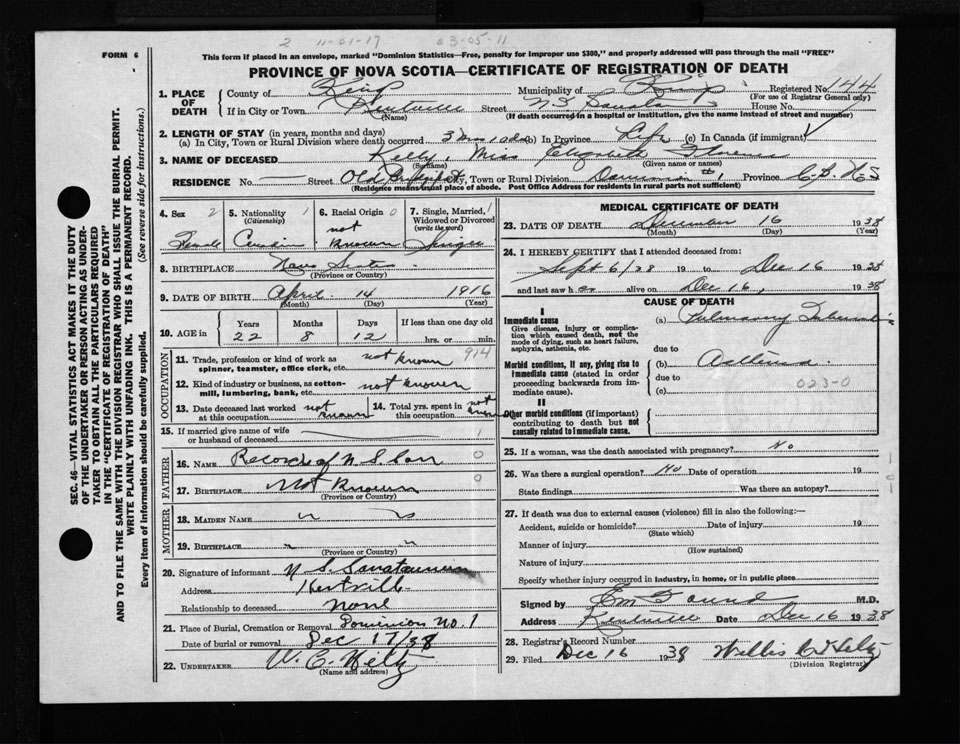 2 11-01-17 03-05-11
FORM 6
This form if placed in an envelope, marked "Dominion Statistics—Free, penalty for improper use $300," and properly addressed will pass through the mail "FREE"
PROVINCE OF NOVA SCOTIA—CERTIFICATE OF REGISTRATION OF DEATH
SEC. 46—VITAL STATISTICS ACT MAKES IT THE DUTY
OF THE UNDERTAKER OR PERSON ACTING AS UNDER-
TAKER TO OBTAIN ALL THE PARTICULARS REQUIRED
IN THE "CERTIFICATE OF REGISTRATION OF DEATH"
AND TO FILE THE SAME WITH THE DIVISION REGISTRAR WHO SHALL ISSUE THE BURIAL PERMIT.
WRITE PLAINLY WITH UNFADING INK. THIS IS A PERMANENT RECORD.
Every item of information should be carefully supplied. (See reverse side for instructions.)
1. PLACE OF DEATH
County of Kings Municipality of Kings Registered No. 144
(For use of Registrar General only)
If in City or Town Kentville Street N.S. House No.
(Name) (If death occurred in a hospital or institution, give the name instead of street and number)
2. LENGTH OF STAY (in years, months and days)
(a) In City, Town or Rural Division where death occurred 3 mos 10 ds (b) In Province Life (c) In Canada (if immigrant) ✓
3. NAME OF DECEASED Kelly, Miss Elizabeth
(Surname) (Given name or names)
RESIDENCE No. — Street Old City, Town or Rural Division Dominion #1 Province C.B. N.S
(Residence means usual place of abode. Post Office Address for residents in rural parts not sufficient)
4. Sex 2 Female
5. Nationality 1 (Citizenship) Canadian
6. Racial Origin 0 not known
7. Single, Married, Widowed or Divorced (write the word) 1 Single
8. BIRTHPLACE Nova Scotia
(Province or Country)
9. DATE OF BIRTH April 14 1916
(Month) (Day) (Year)
10. AGE in Years 22 Months 8 Days 12 If less than one day old hrs. or min.
OCCUPATION
11. Trade, profession or kind of work as spinner, teamster, office clerk, etc. not known 914
12. Kind of industry or business, as cotton-mill, lumbering, bank, etc. not known
13. Date deceased last worked at this occupation not known
14. Total yrs. spent in this occupation not known
15. If married give name of wife or husband of deceased — 1
FATHER
16. NAME Records of N.S. San 0
17. BIRTHPLACE Not known 0
(Province or Country)
MOTHER
18. MAIDEN NAME " "
19. BIRTHPLACE " "
(Province or Country)
20. Signature of informant N.S. Sanatorium
Address Kentville
Relationship to deceased none
21. Place of Burial, Cremation or Removal Dominion No. 1
Date of burial or removal Dec 17/38
22. UNDERTAKER W.C.
(Name and address)
MEDICAL CERTIFICATE OF DEATH
23. DATE OF DEATH December 16 1938
(Month) (Day) (Year)
24. I HEREBY CERTIFY that I attended deceased from:
Sept 6/38 19 to Dec 16 1938
and last saw her alive on Dec 16, 1938
CAUSE OF DEATH
I
Immediate cause
Give disease, injury or complication which caused death, not the mode of dying, such as heart failure, asphyxia, asthenia, etc.
(a) Pulmonary
due to
Morbid conditions, if any, giving rise to immediate cause (stated in order proceeding backwards from immediate cause).
(b)
due to
(c) 023-0
II
Other morbid conditions (if important) contributing to death but not causally related to immediate cause.
25. If a woman, was the death associated with pregnancy? No
26. Was there a surgical operation? No Date of operation 19
State findings Was there an autopsy?
27. If death was due to external causes (violence) fill in also the following:—
Accident, suicide or homicide? Date of injury 19
(State which)
Manner of injury
(How sustained)
Nature of injury
Specify whether injury occurred in industry, in home, or in public place
Signed by M.D.
Address Kentville Date Dec 16 1938
28. Registrar's Record Number
29. Filed Dec 16 1938
(Division Registrar)